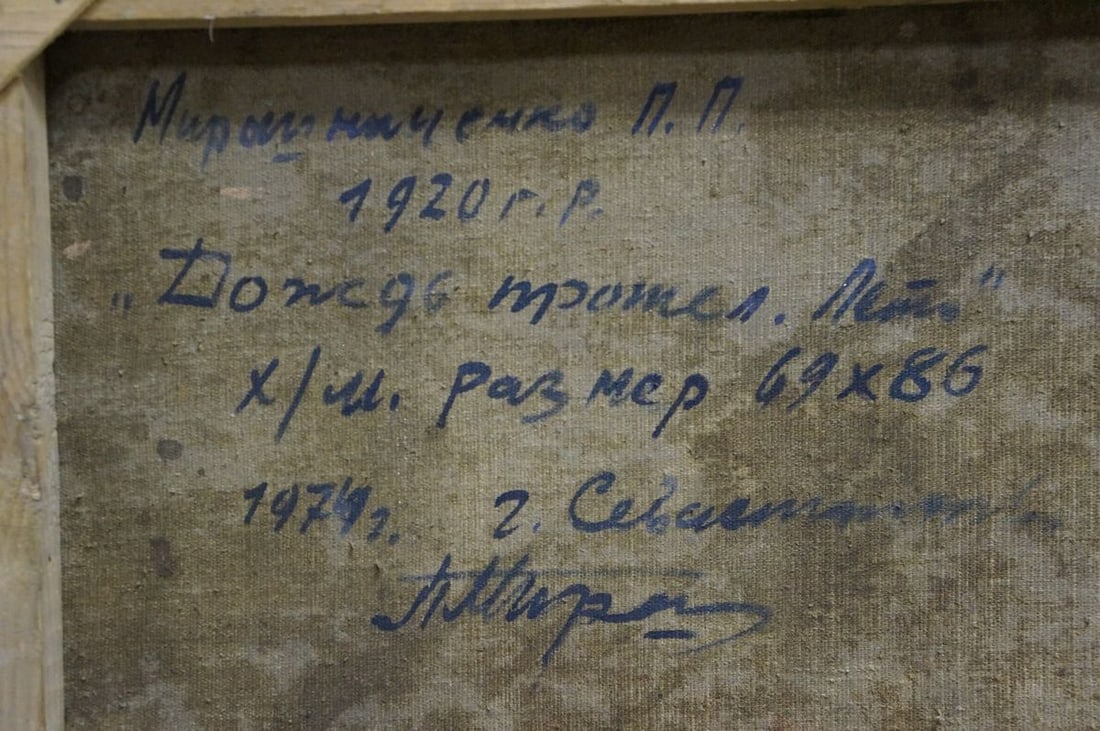 Мирошниченко П. П.
1920 г. р.
„Дождь прошел. Лето"
х/м. размер 69х86
1974г. г. Севастополь
ПМиро